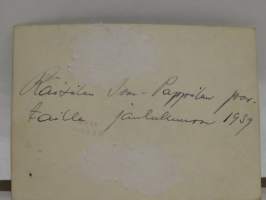 Räisälän Iso-Pappilan por-
tailla joulukuussa 1939